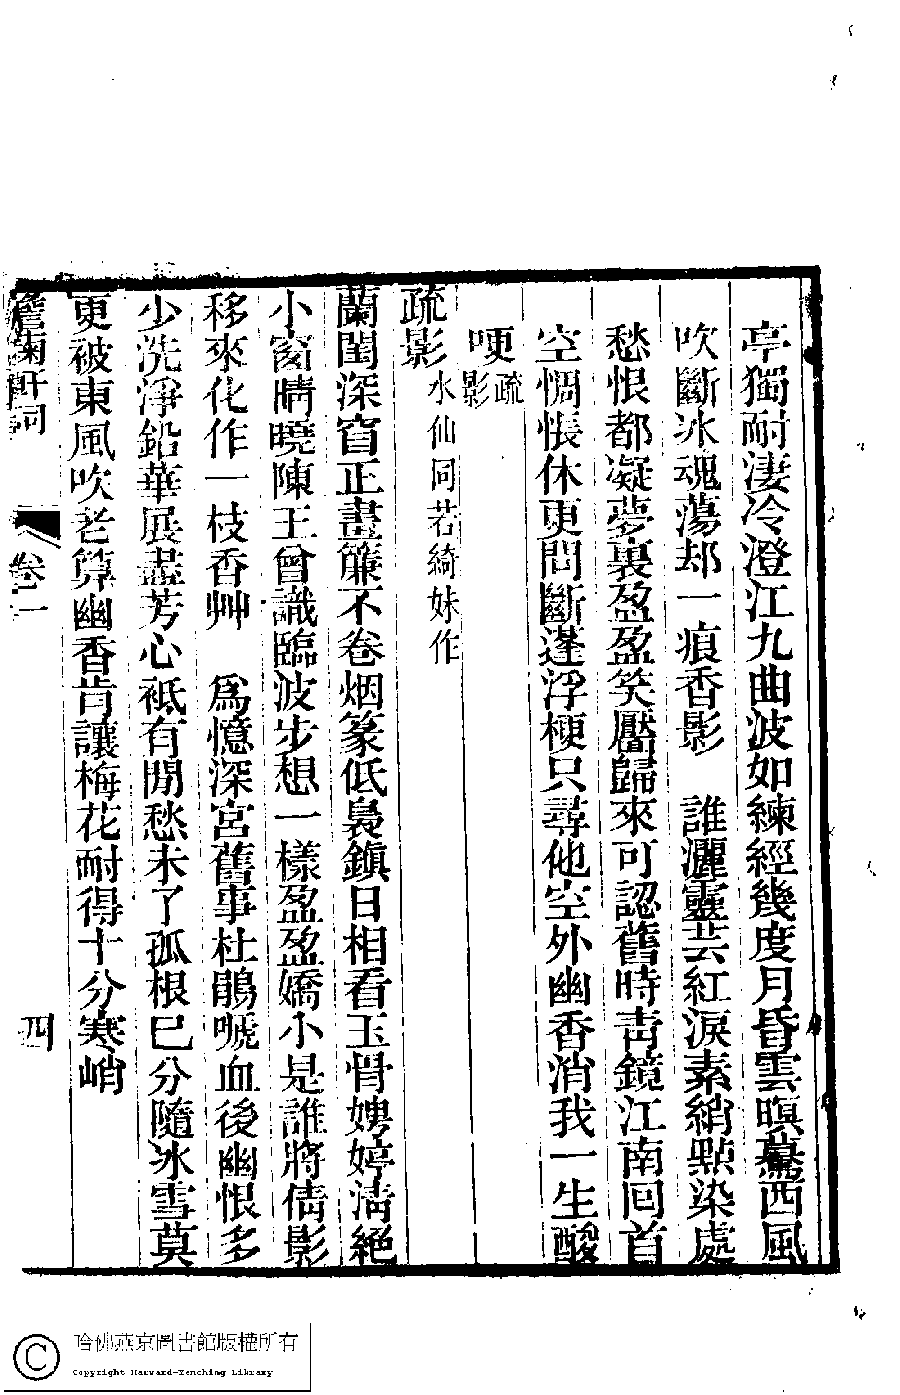 亭獨耐淒冷澄江九曲波如練經幾度月昏雲暝驀西風
吹斷冰魂蕩却一痕香影　誰灑靈芸紅淚素綃點染處
愁恨都凝夢裏盈盈笑靨歸來可認舊時靑鏡江南囘首
空惆悵休更問斷蓬浮梗只尋他空外幽香消我一生酸
哽疏影
疏影水仙同若綺妹作
蘭閨深窅正畫簾不卷烟篆低裊鎭日相看玉骨娉婷淸絕
小窗晴曉陳王曾識臨波步想一樣盈盈嬌小是誰將倩影
移來化作一枝香艸　爲憶深宮舊事杜鵑嗁血後幽恨多
少洗淨鉛華展盡芳心祗有閒愁未了孤根已分隨冰雪莫
更被東風吹老算幽香肯讓梅花耐得十分寒峭
澹菊軒詞
卷一
四
哈佛燕京圖書館版權所有
Copyright Harvard-Yenching Library